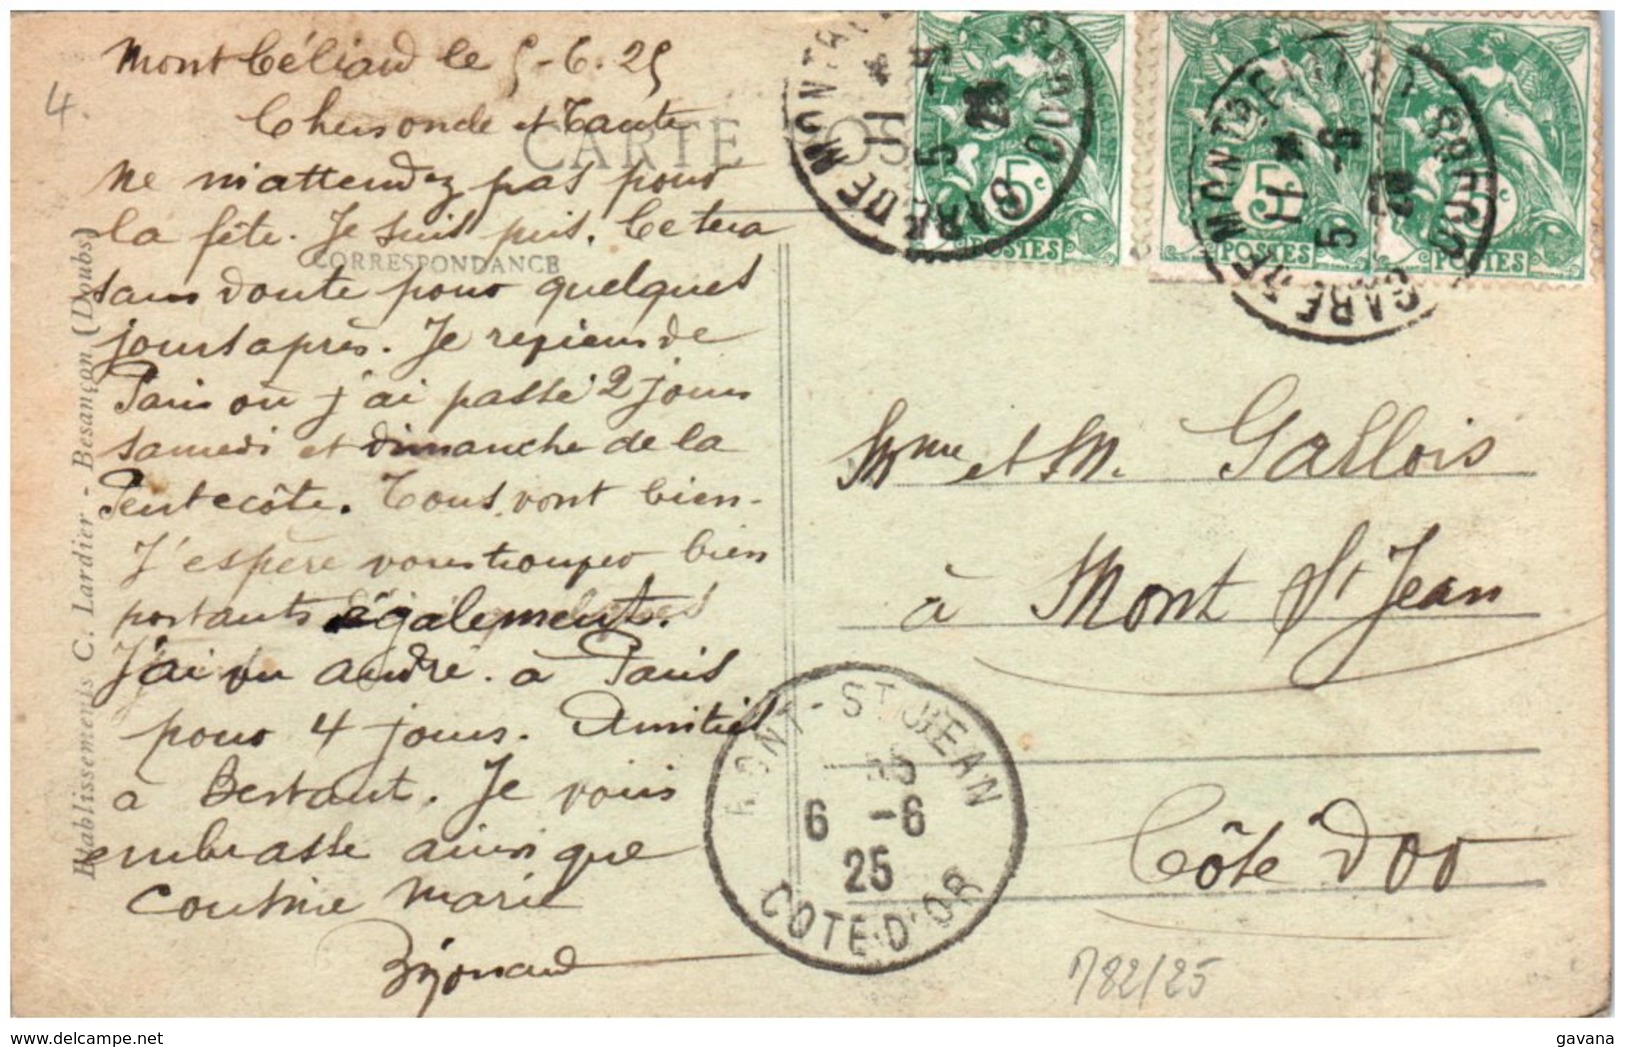 Montbéliard le 5-6.25
4.
Cher oncle et Tante
CARTE POS
CORRESPONDANCE
ne m'attendez pas pour
la fête. Je suis pris. Ce sera
sans doute pour quelques
jours après. Je reviens de
Paris ou j'ai passé 2 jours
samedi et dimanche de la
Pentecôte. Tous vont bien.
J'espère vous trouver bien
portants également.
J'ai vu André à Paris
pour 4 jours. Amitiés
à Bertaut. Je vous
embrasse ainsi que
Cousine Marie
Etablissements C. Lardier - Besançon (Doubs)
GARE DE MONTBELIARD DOUBS
11
5 -6
25
5c
POSTES
GARE DE MONTBELIARD DOUBS
11
5 -6
25
5
POSTES
5c
POSTES
Mme et M. Gallois
à Mont St Jean
Côte d'Or
MONT-ST JEAN
6 -6
25
COTE-D'OR
782/25
gavana
delcampe.net